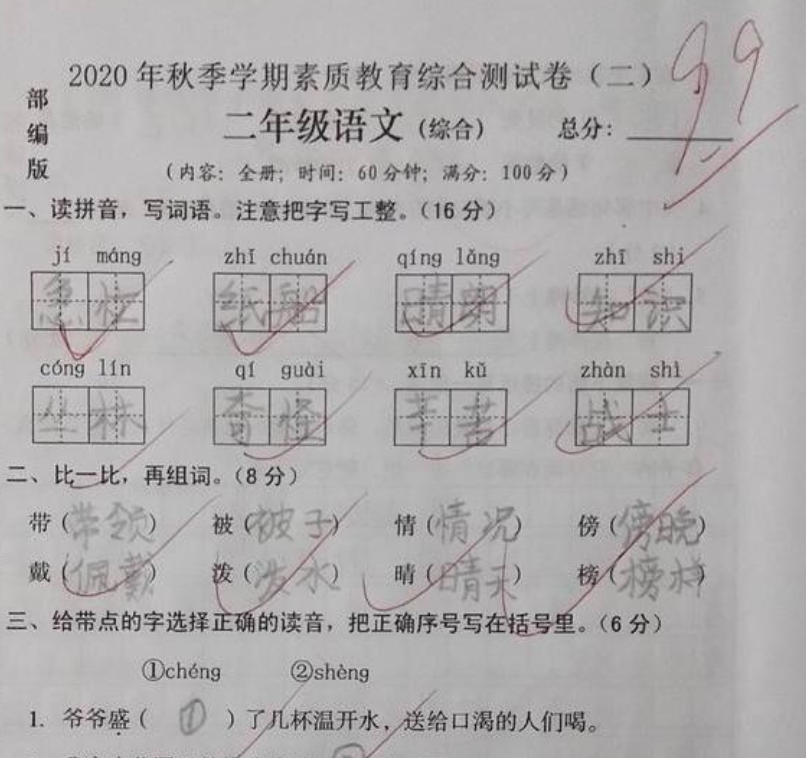 99
2020年秋季学期素质教育综合测试卷（二）
部编版
二年级语文（综合） 总分：
（内容：全册；时间：60分钟；满分：100分）
一、读拼音，写词语。注意把字写工整。（16分）
jí máng zhǐ chuán qíng lǎng zhī shi
急忙 纸船 晴朗 知识
cóng lín qí guài xīn kǔ zhàn shì
丛林 奇怪 辛苦 战士
二、比一比，再组词。（8分）
带（带领） 被（被子） 情（情况） 傍（傍晚）
戴（佩戴） 泼（泼水） 晴（晴天） 榜（榜样）
三、给带点的字选择正确的读音，把正确序号写在括号里。（6分）
①chéng ②shèng
1. 爷爷盛（ ① ）了几杯温开水，送给口渴的人们喝。